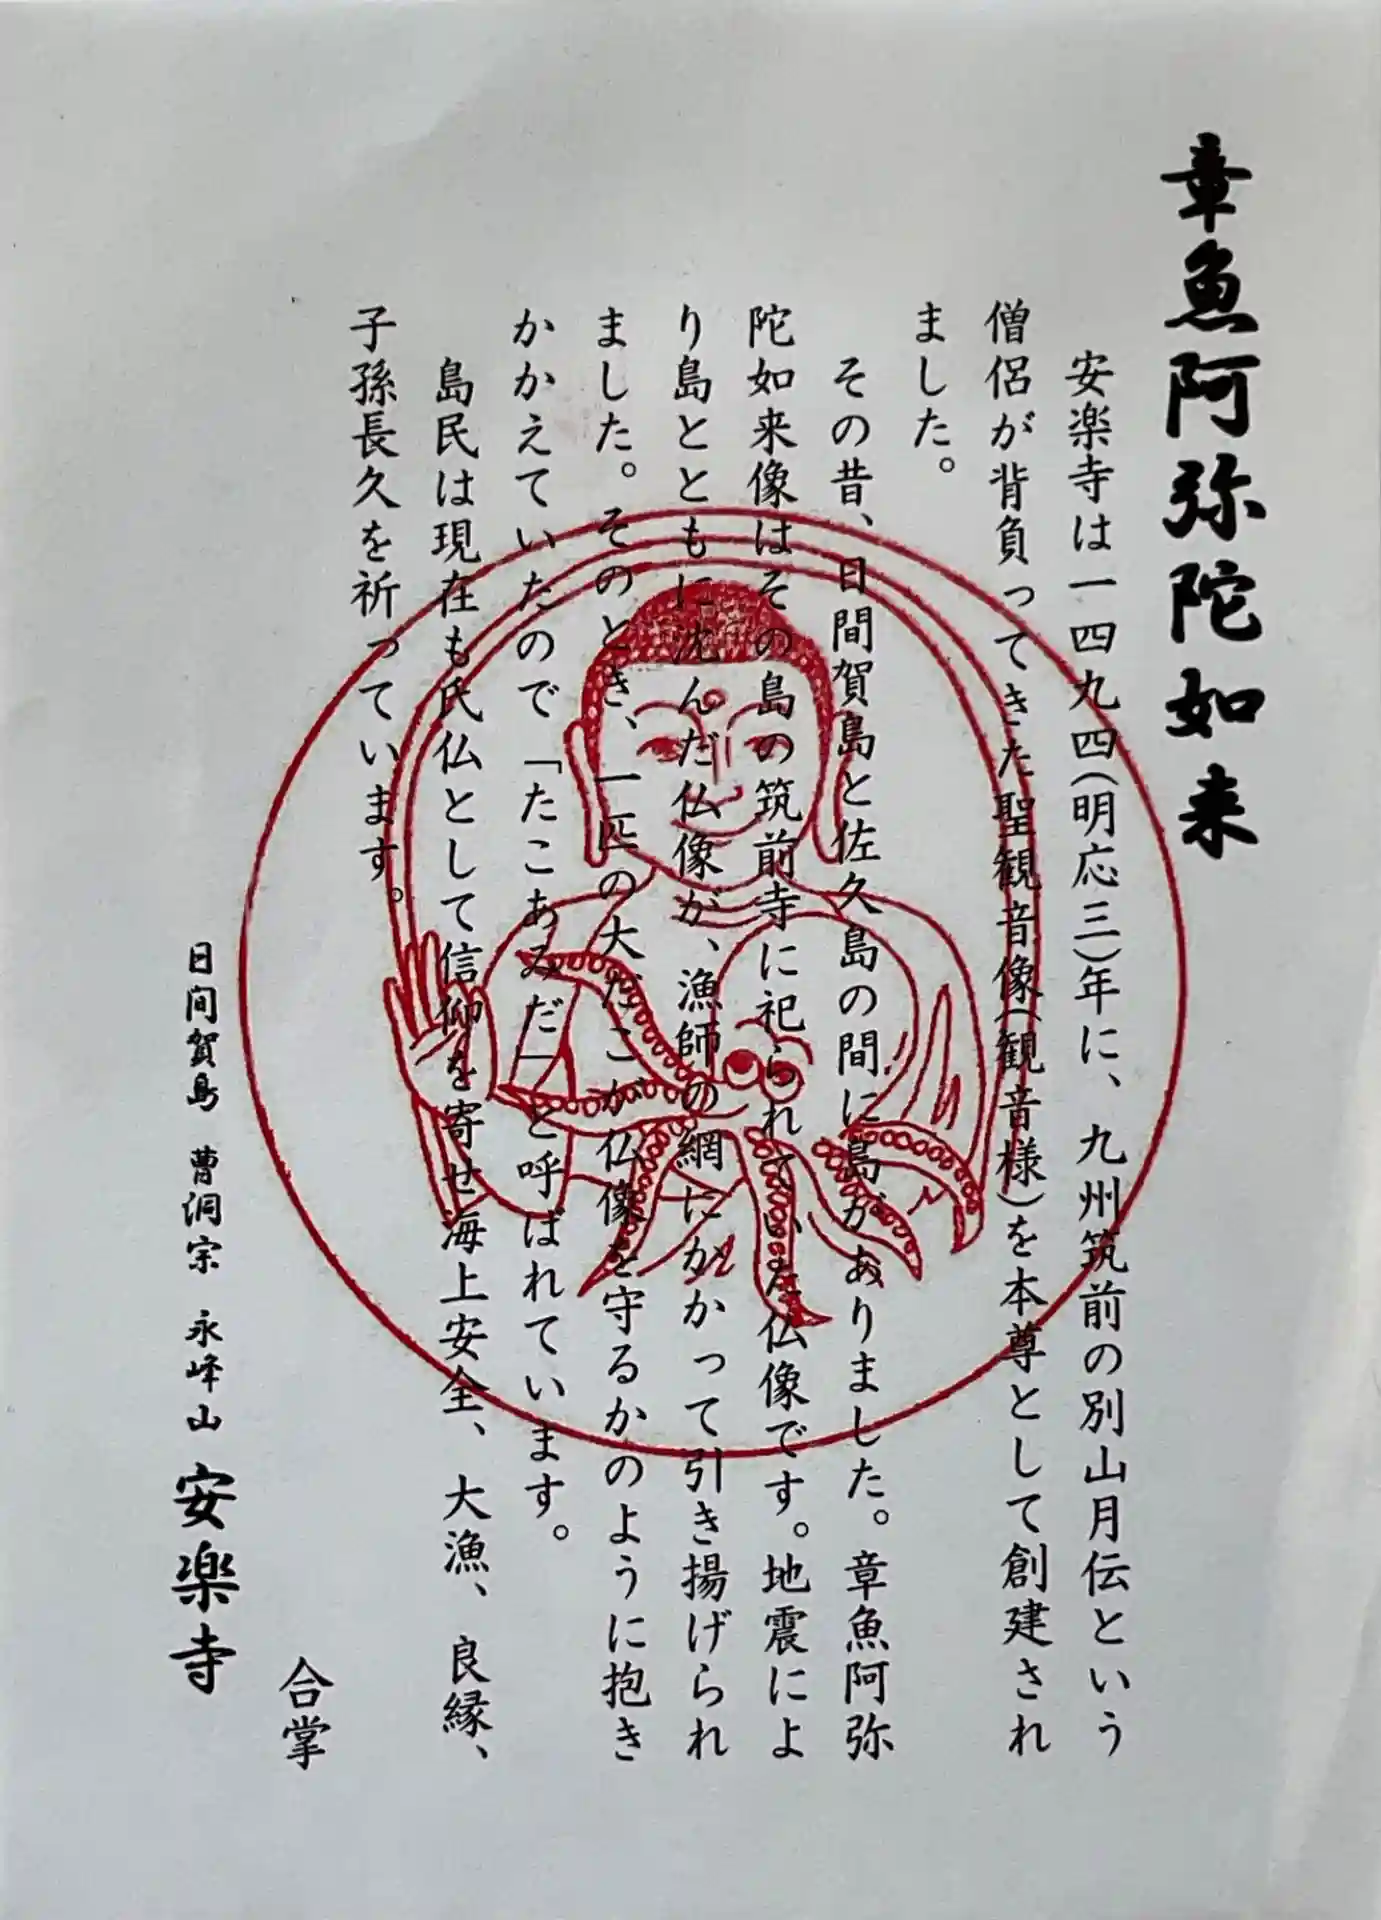 章魚阿弥陀如来
安楽寺は一四九四(明応三)年に、九州筑前の別山月伝という
僧侶が背負ってきた聖観音像(観音様)を本尊として創建され
ました。
その昔、日間賀島と佐久島の間に島がありました。章魚阿弥
陀如来像はその島の筑前寺に祀られていた仏像です。地震によ
り島とともに沈んだ仏像が、漁師の網にかかって引き揚げられ
ました。そのとき、一匹の大だこが仏像を守るかのように抱き
かかえていたので「たこあみだ」と呼ばれています。
島民は現在も氏仏として信仰を寄せ海上安全、大漁、良縁、
子孫長久を祈っています。
合掌
日間賀島 曹洞宗 永峰山 安楽寺